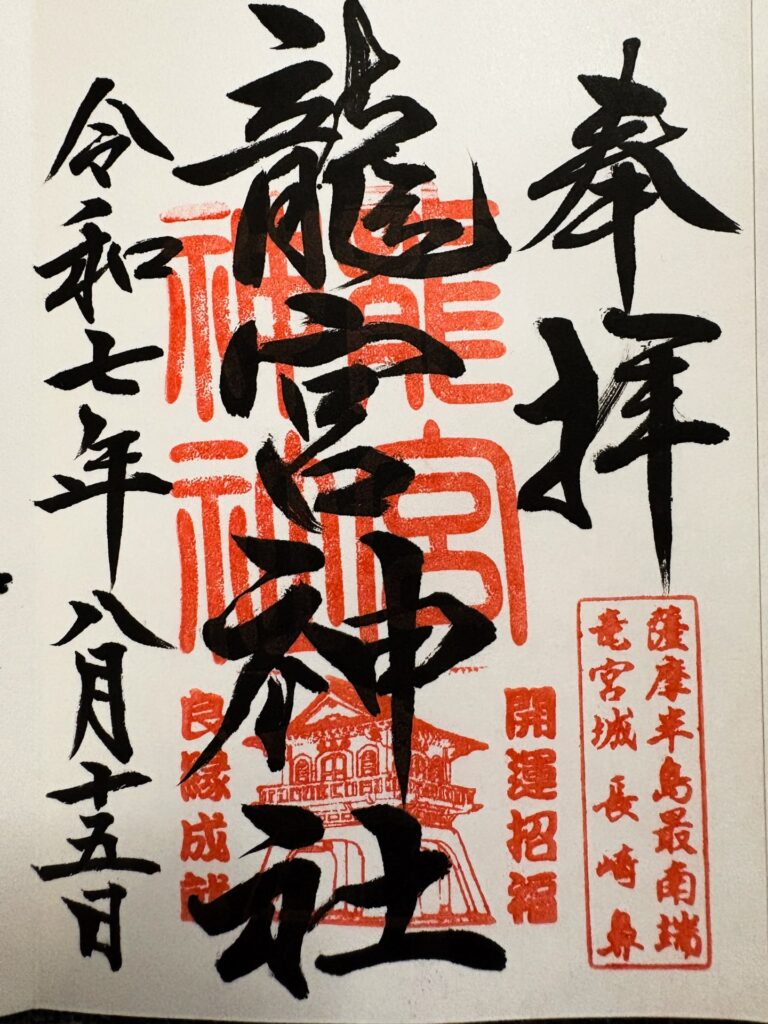 奉拝
薩摩半島最南端
竜宮城 長崎鼻
開運招福
龍宮神社
龍宮
神社
良縁成就
令和七年八月十五日